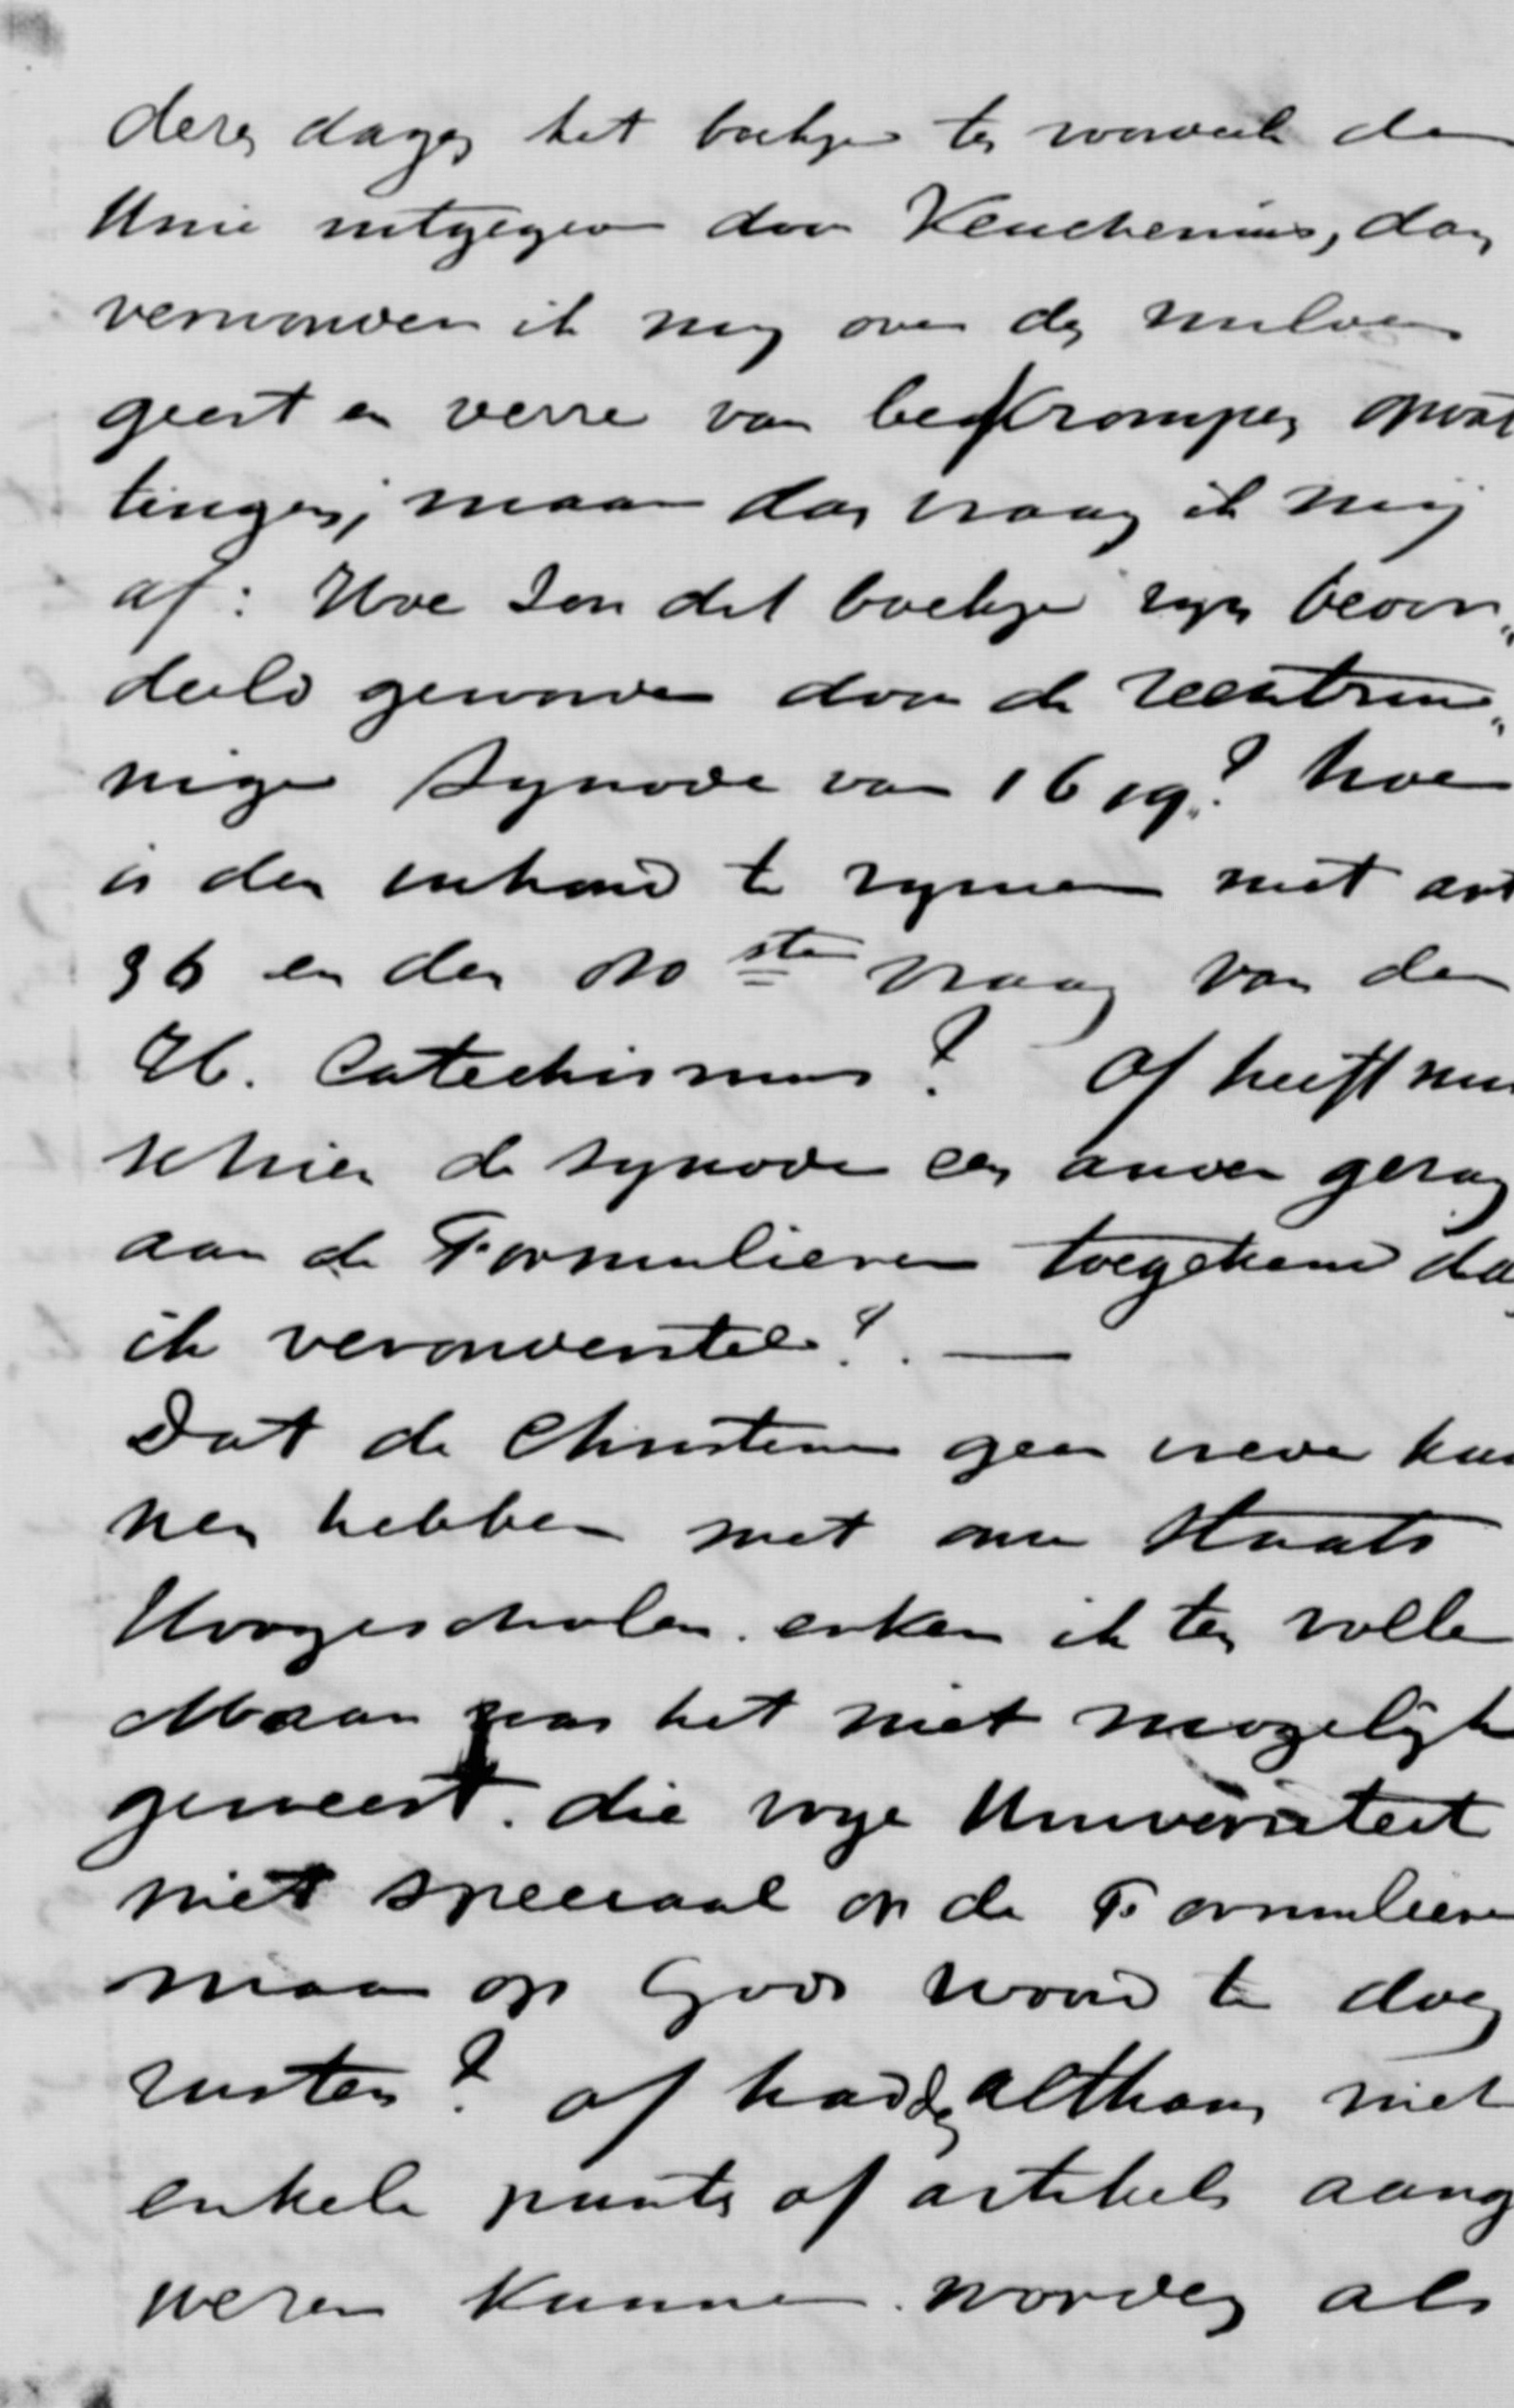 dezer dagen het boekje ten voordeele der
Unie uitgegeven door Keuchenius, dan
verwonder ik mij over den milden
geest en verre van bekrompen opvat
tingen, maar dan vraag ik mij
af: Hoe zou dit boekje zijn beoor„
deeld geworden door de rechtzin„
nige Synode van 1619? hoe
is den inhoud te rijmen met art
36 en den 80ste vraag van den
H. Catechismus? Of heeft mis
schien de synode een ander gezag
aan de Formulieren toegekend dan
ik veronderstel? —
Dat de Christenen geen vrede kun
nen hebben met onze Staats
Hoogescholen. erken ik ten volle
Maar was het niet mogelijk
geweest. die vrije Universiteit
niet speciaal op de Formulieren
maar op Gods woord te doen
rusten? of hadden althans niet
enkele punten of artikels aange
wezen kunnen worden als